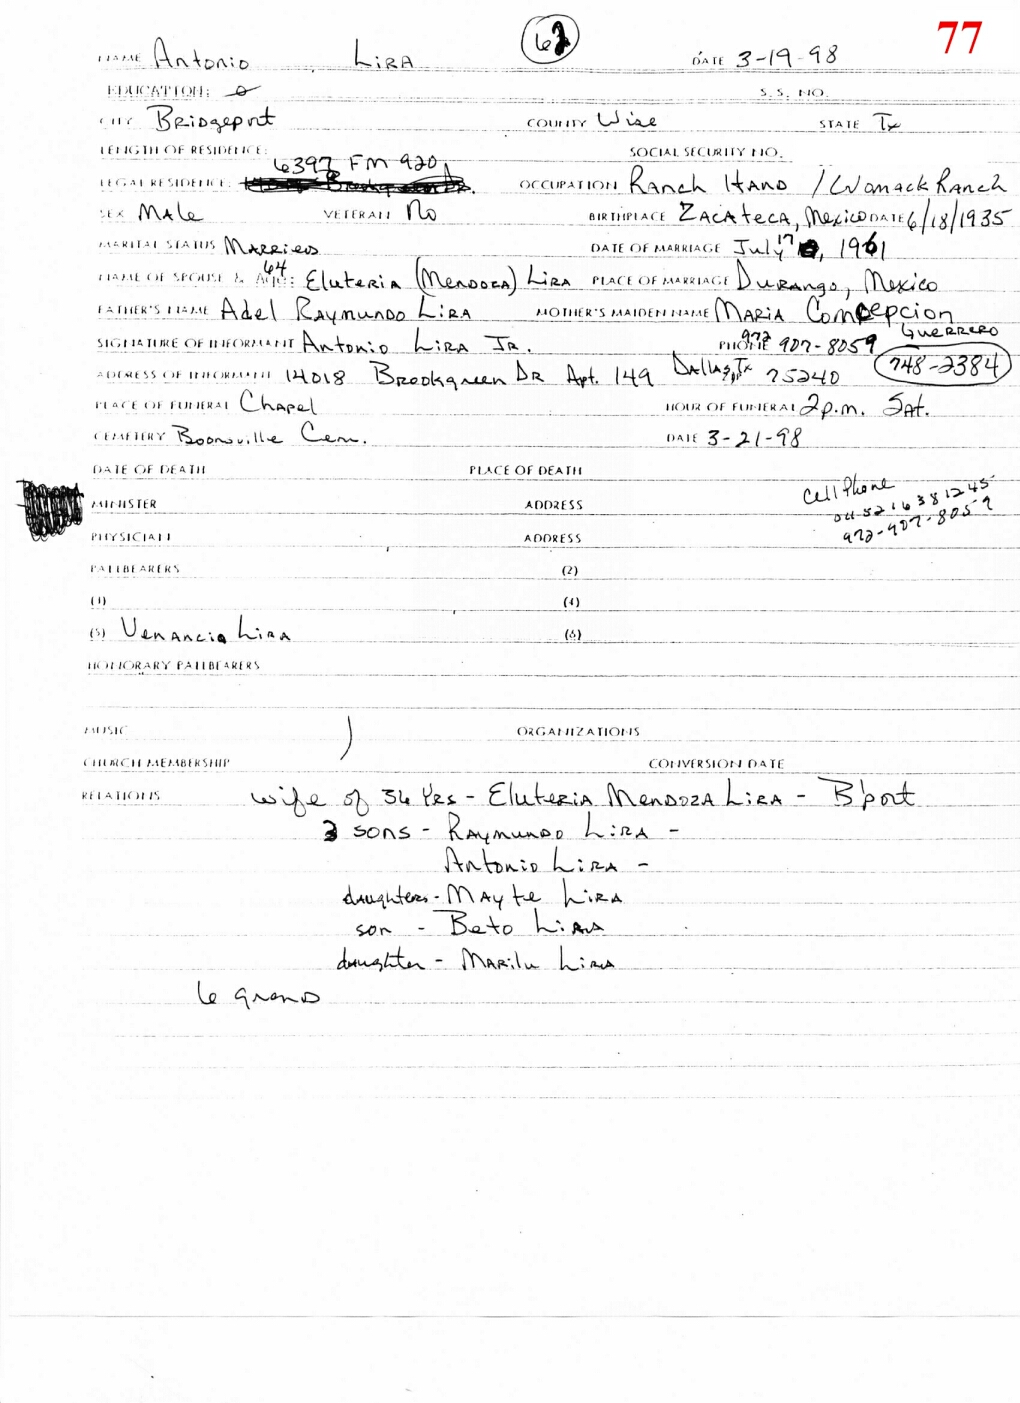 62
77
NAME Antonio Lira DATE 3-19-98
EDUCATION: 0 S.S. NO.
CITY Bridgeport COUNTY Wise STATE Tx
LENGTH OF RESIDENCE: SOCIAL SECURITY NO.
6397 FM 920
LEGAL RESIDENCE: OCCUPATION Ranch Hand / Womack Ranch
SEX Male VETERAN No BIRTHPLACE Zacateca, Mexico DATE 6/18/1935
MARITAL STATUS Married DATE OF MARRIAGE July 17, 1961
NAME OF SPOUSE & AGE: 64 Eluteria (Mendoza) Lira PLACE OF MARRIAGE Durango, Mexico
FATHER'S NAME Adel Raymundo Lira MOTHER'S MAIDEN NAME Maria Concepcion Guerrero
SIGNATURE OF INFORMANT Antonio Lira Jr. PHONE 972 907-8059
ADDRESS OF INFORMANT 14018 Brookgreen Dr Apt. 149 Dallas, Tx 75240 748-2384
PLACE OF FUNERAL Chapel HOUR OF FUNERAL 2 p.m. Sat.
CEMETERY Boonsville Cem. DATE 3-21-98
DATE OF DEATH PLACE OF DEATH
MINISTER ADDRESS
Cell Phone
011 5216381245
972-907-8059
PHYSICIAN ADDRESS
PALLBEARERS (2)
(3) (4)
(5) Venancio Lira (6)
HONORARY PALLBEARERS
MUSIC ORGANIZATIONS
CHURCH MEMBERSHIP CONVERSION DATE
RELATIONS wife of 36 yrs - Eluteria Mendoza Lira - B'port
3 sons - Raymundo Lira -
Antonio Lira -
daughters - Mayte Lira
son - Beto Lira
daughter - Marilu Lira
6 grand